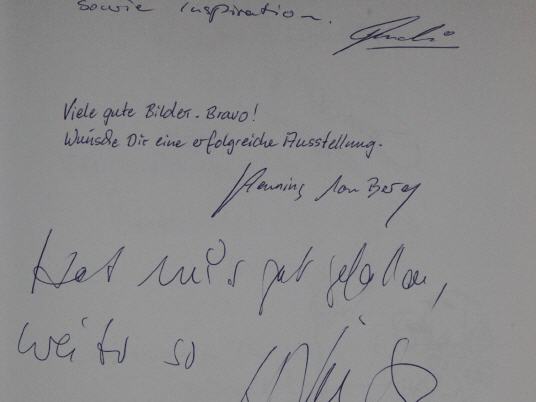 sowie Inspiration.
Viele gute Bilder. Bravo!
Wünsche Dir eine erfolgreiche Ausstellung.
Henning von Berg
Hat mir gut gefallen,
weiter so